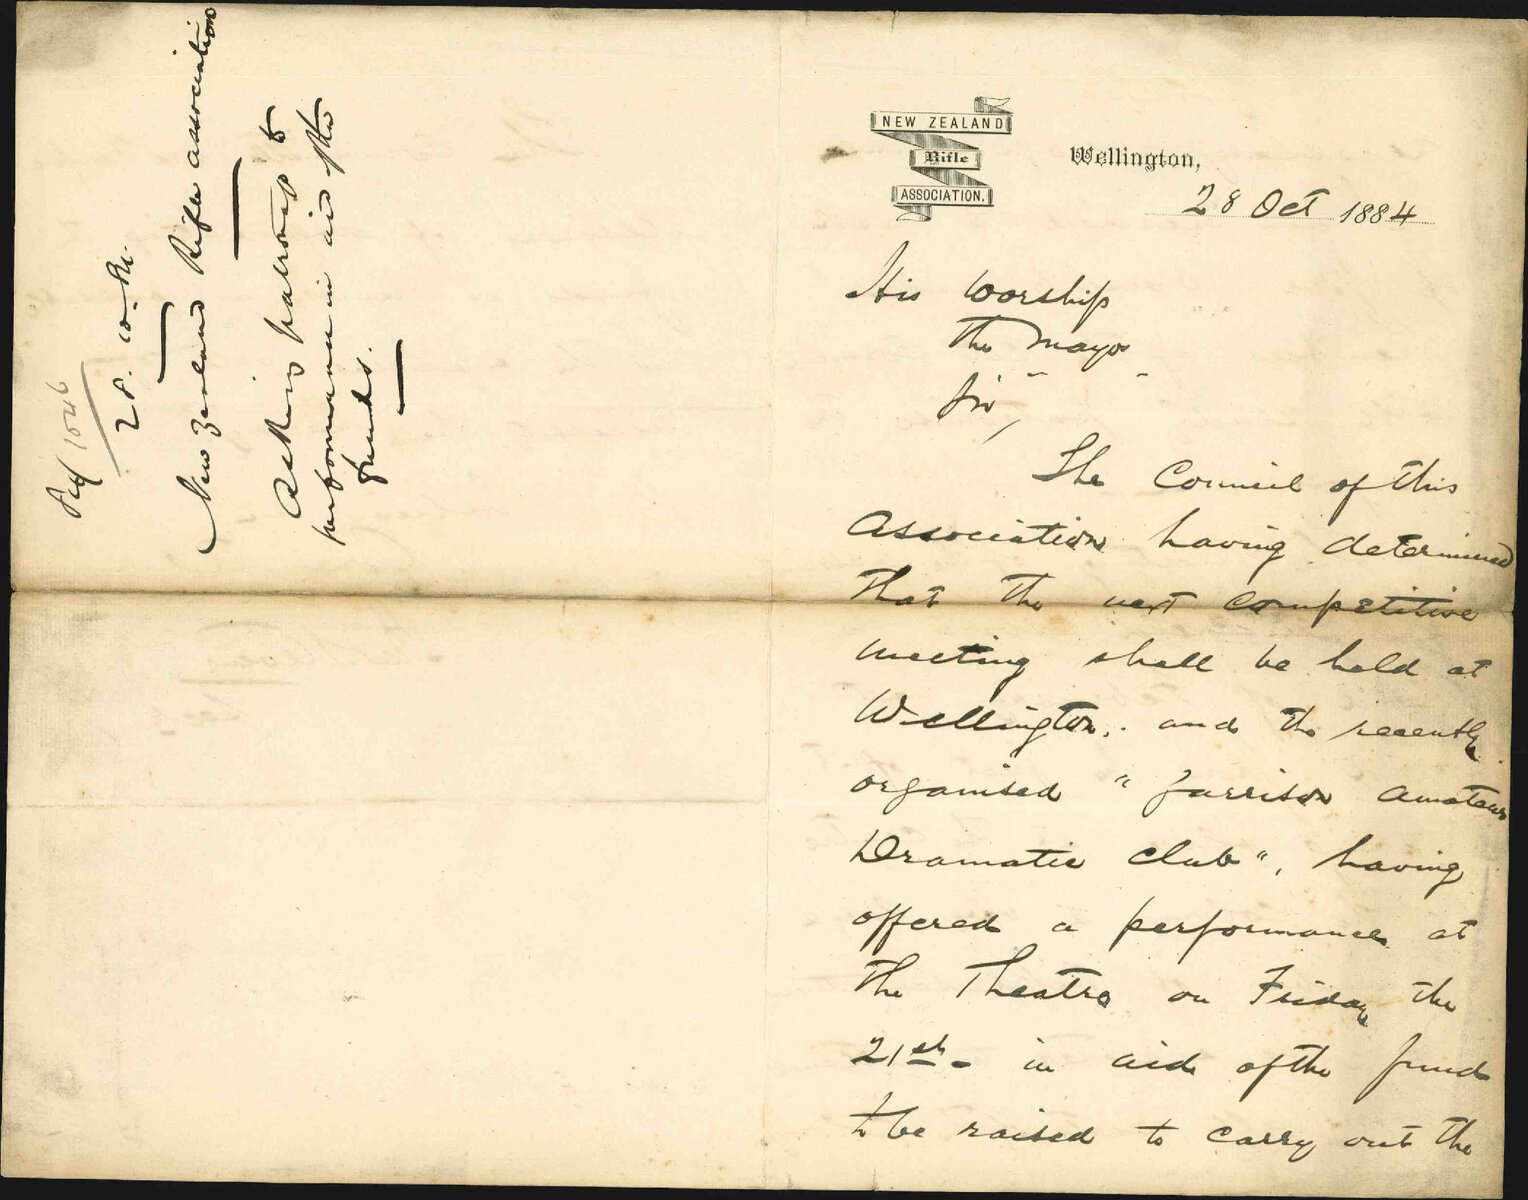 28. 10. 84.
New Zealand Rifle association
Asking patronage to
performance in aid of the
funds.
NEW ZEALAND
Rifle
ASSOCIATION.
Wellington,
28 Oct 1884
His Worship
The Mayor
Sir,
The Council of this
Association having determined
that the next Competitive
meeting shall be held at
Wellington,. and the recently
organised "Garrison Amateur
Dramatic Club", having
offered a performance at
the Theatre on Friday the
21st - in aid of the fund
to be raised to carry out the